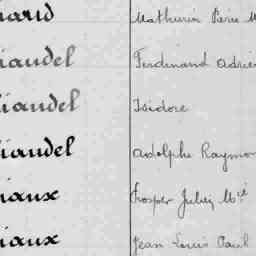 iard Mathurin Pierre M
iaudel Ferdinand Adrien
iaudel Isidore
iaudel Adolphe Raymon
iaux Prosper Julien Mie
iaux Jean Louis Paul